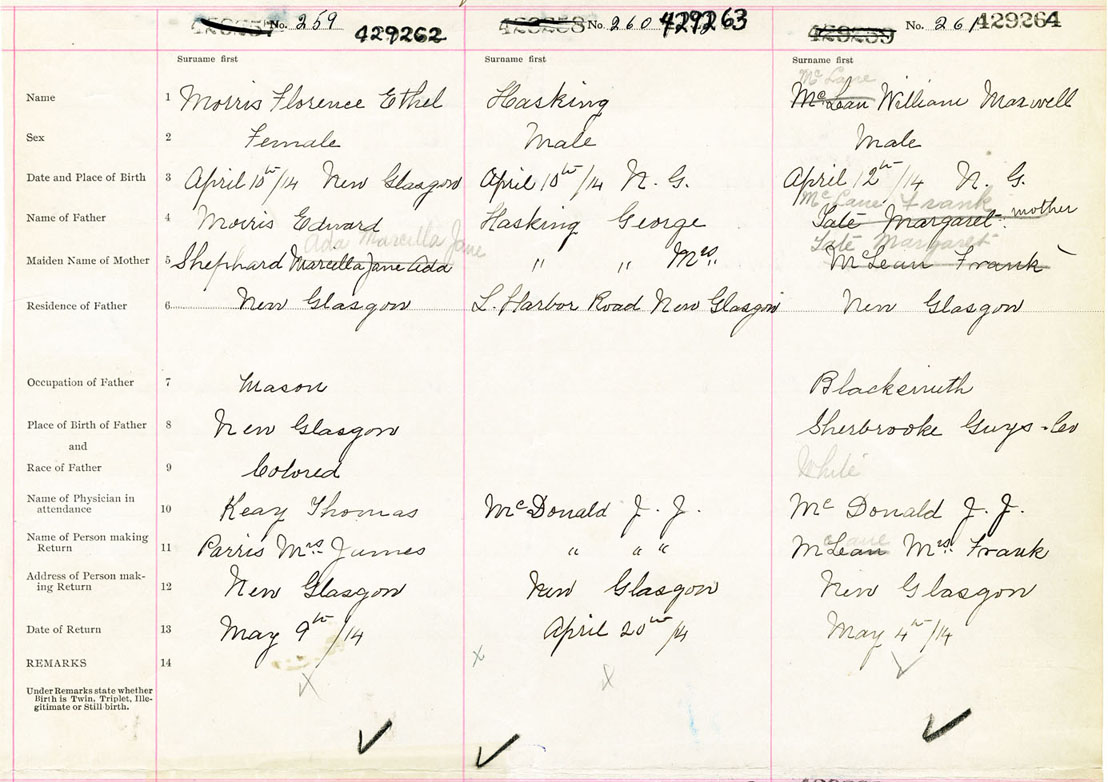 No. 259 429262
No. 260 429263
No. 261 429264
Surname first Surname first Surname first
Mc Lane
Name 1 Morris Florence Ethel Hasking McLean William Maxwell
Sex 2 Female Male Male
Date and Place of Birth 3 April 10th/14 New Glasgow April 10th/14 N. G. April 12th/14 N. G.
McLane Frank
Name of Father 4 Morris Edward Hasking George Tate Margaret: mother
Ada Marcilla Jane Tate Margaret
Maiden Name of Mother 5 Shephard Marcella Jane Ada " " Mrs. " McLean Frank
Residence of Father 6 New Glasgow L. Harbor Road New Glasgow New Glasgow
Occupation of Father 7 Mason Blacksmith
Place of Birth of Father 8 New Glasgow Sherbrooke Guys-Co
and
Race of Father 9 Colored White
Name of Physician in
attendance 10 Keay Thomas McDonald J. J. Mc Donald J. J.
Name of Person making
Return 11 Parris Mrs. James " " " McLean Mrs. Frank
Lane
Address of Person mak-
ing Return 12 New Glasgow New Glasgow New Glasgow
Date of Return 13 May 9th/14 April 20th/14 May 4th/14
REMARKS 14
Under Remarks state whether
Birth is Twin, Triplet, Ille-
gitimate or Still birth.